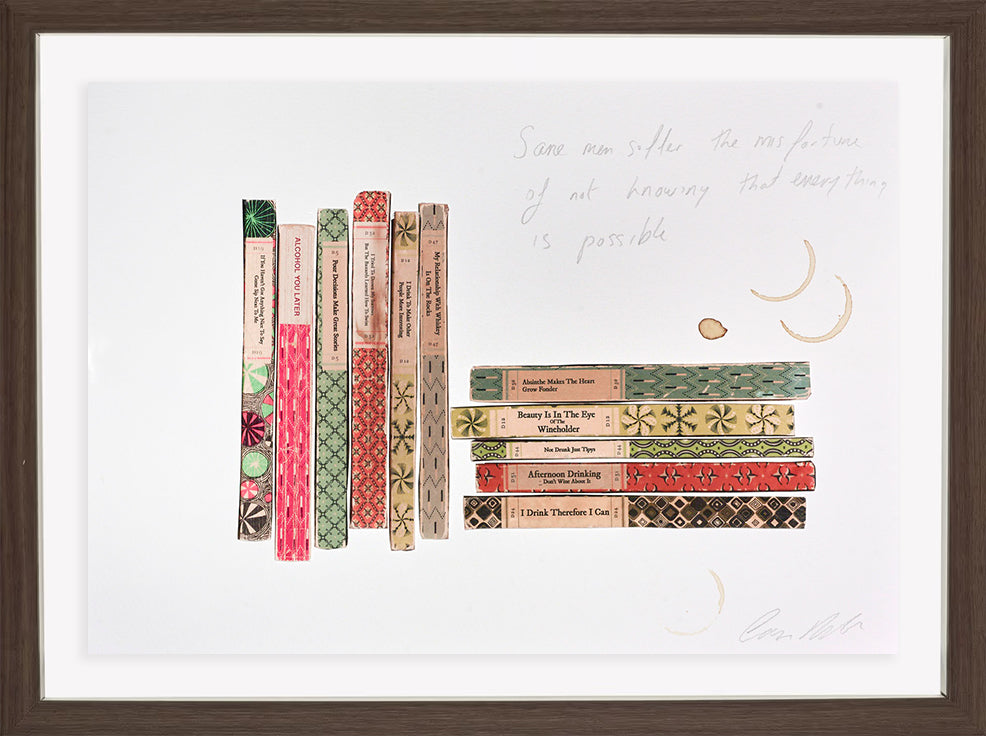 Some men suffer the misfortune
of not knowing that everything
is possible
If You Haven't Got Anything Nice To Say
Come Sip Next To Me
ALCOHOL YOU LATER
D5
Poor Decisions Make Great Stories
D5
D32
I Tried To Drown My Sorrows
But The Bastards Learned How To Swim
I Drink To Make Other
People More Interesting
D47
My Relationship With Whiskey
Is On The Rocks
D47
Absinthe Makes The Heart
Grow Fonder
Beauty Is In The Eye
Of The
Wineholder
Not Drunk Just Tipsy
Afternoon Drinking
Don't Wine About It
I Drink Therefore I Can